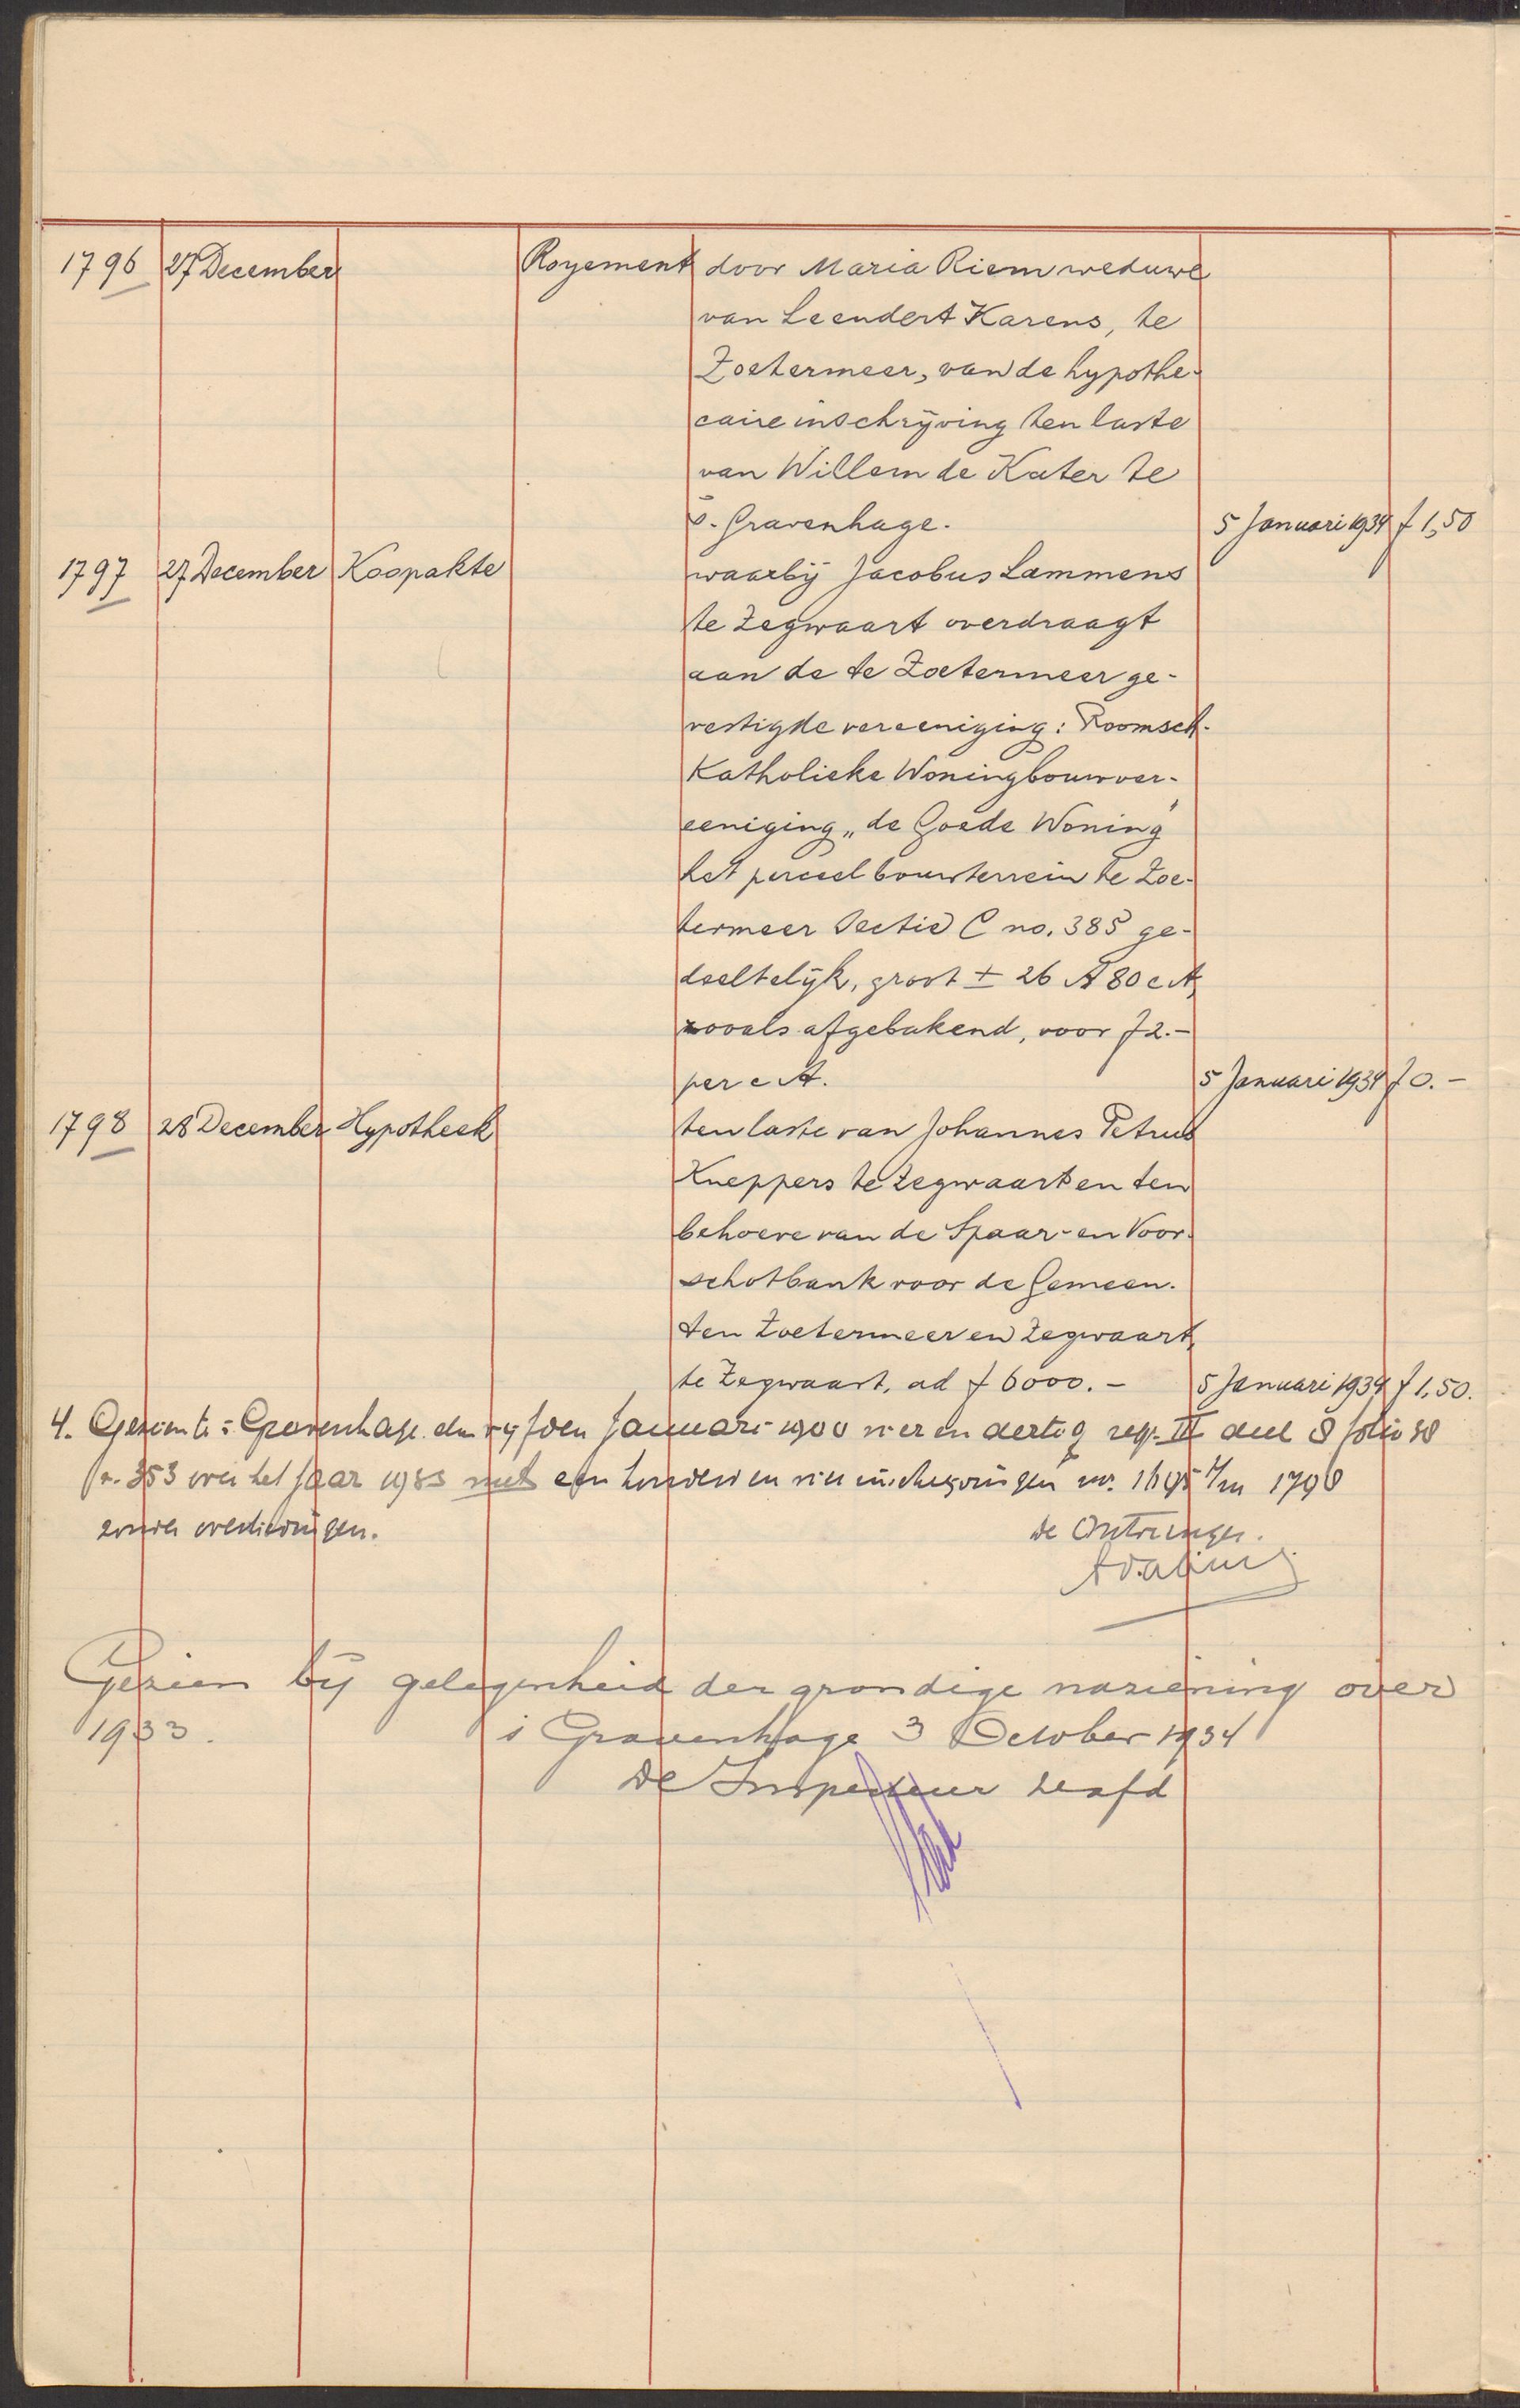 1796 27 December Royement door Maria Riem weduwe
van Leendert Karens, te
Zoetermeer, van de hypothe-
caire inschrijving ten laste
van Willem de Kater te
's-Gravenhage. 5 Januari 1934 f 1,50
1797 27 December Koopakte waarbij Jacobus Lammens
te Zegwaart overdraagt
aan de te Zoetermeer ge-
vestigde vereeniging: Roomsch-
Katholieke Woningbouwver-
eeniging „de Goede Woning"
het perceel bouwterrein te Zoe-
termeer Sectie C no. 385 ge-
deeltelijk, groot ± 26 A 80 cA,
zooals afgebakend, voor f2.-
per cA. 5 Januari 1934 f 0.-
1798 28 December Hypotheek ten laste van Johannes Petrus
Kneppers te Zegwaart en ten
behoeve van de Spaar- en Voor-
schotbank voor de Gemeen-
ten Zoetermeer en Zegwaart,
te Zegwaart, ad f 6000.- 5 Januari 1934 f 1,50.
4. Gezien te 's Gravenhage den vijfden Januari 1900 vier en dertig reg. III deel 8 folio
n. 353 over het jaar 1933 met een honderd en vier inschrijvingen nr. t/m 1798
zonder
de Ontvanger.
Gezien bij gelegenheid der grondige naziening over
1933. 's Gravenhage 3 October 1934
De Inspecteur